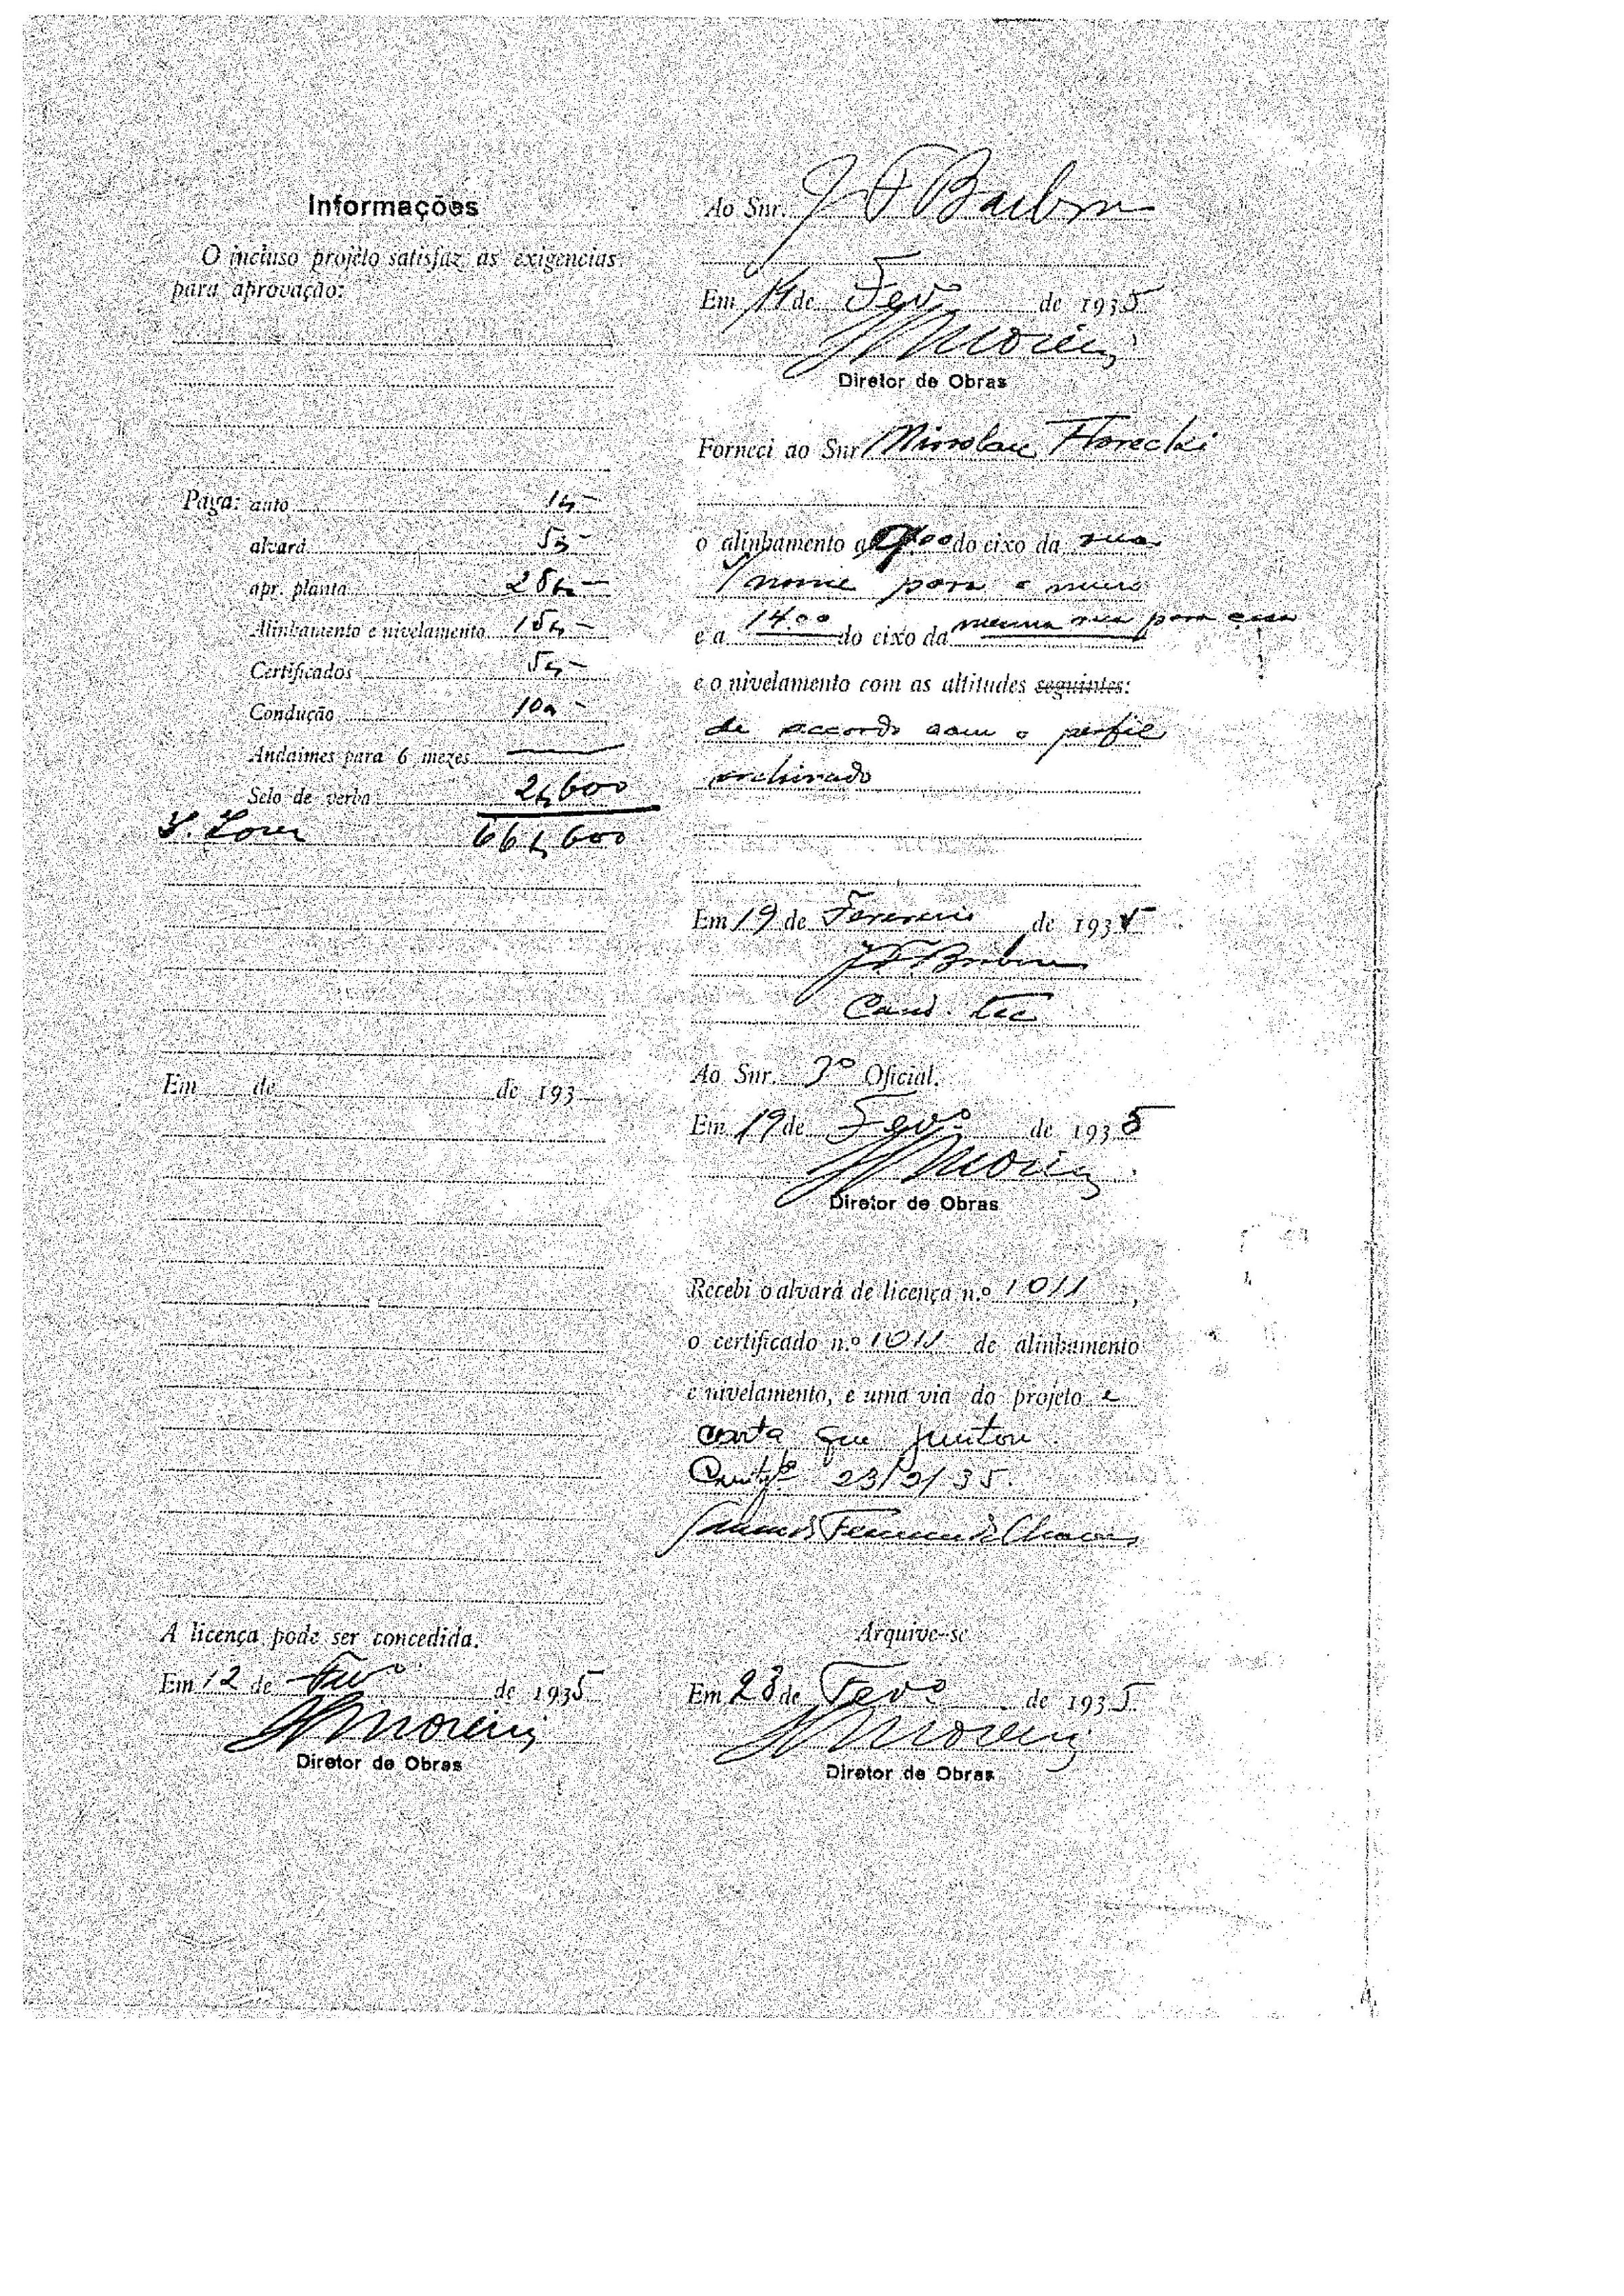 Informações
O incluso projéto satisfaz as exigencias
para aprovação:
Paga: auto 1$-
alvará 5$-
apr. planta 28$-
Alinhamento e nivelamento 15$-
Certificados 5$-
Condução 10$-
Andaimes para 6 mezes
Selo de verba 2$600
66$600
Em de de 193
A licença pode ser concedida.
Em 12 de Fevº de 1935
Diretor de Obras
Ao Snr. J F Barbosa
Em 14 de Fevº de 1935
Moreira
Diretor de Obras
Forneci ao Snr
o alinhamento a do eixo da rua
s/ nome para o muro
e a 14.00 do eixo da mesma rua para casa
e o nivelamento com as altitudes seguintes:
de accordo com o perfil
archivado
Em 19 de Fevereiro de 1935
Cand. tec
Ao Snr. 3º Oficial.
Em 19 de Fevº de 1935
Moreira
Diretor de Obras
Recebi o alvará de licença n.º 1011,
o certificado n.º 1011 de alinhamento
e nivelamento, e uma via do projéto e
carta que juntou.
23/2/35.
Arquive-se
Em 23 de Fevº de 1935
Moreira
Diretor de Obras